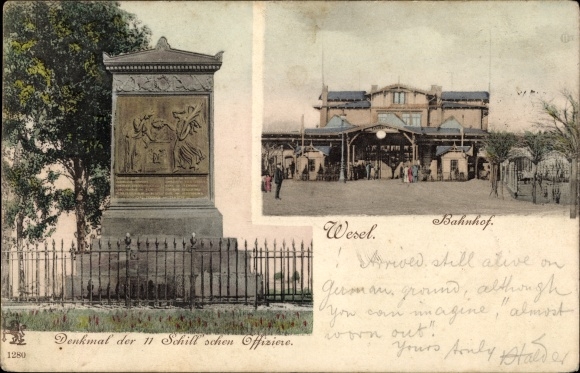 Wesel.
Bahnhof.
! Arrived still alive on
German, ground, although
you can imagine, "almost
worn out".
Yours truly
Denkmal der 11 Schill'schen Offiziere.
1280